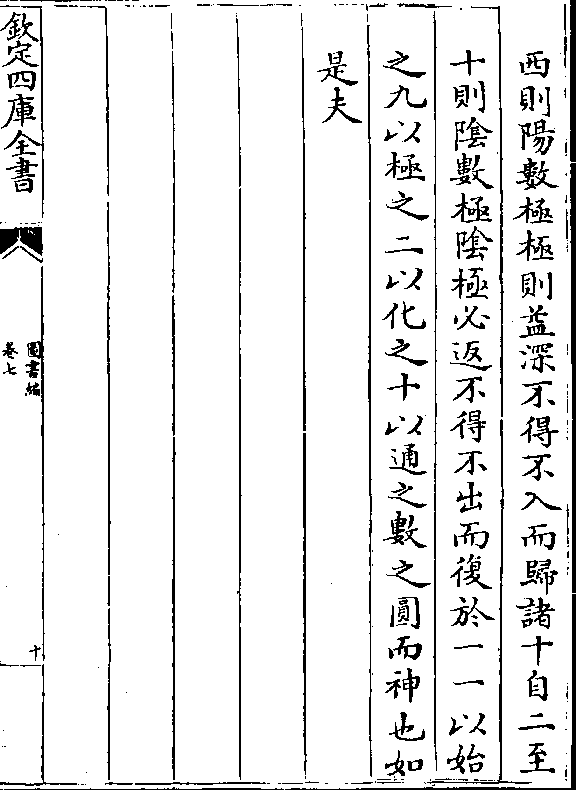 西則陽數極極則益深不得不入而歸諸十自二至
十則陰數極陰極必返不得不出而復於一一以始
之九以極之二以化之十以通之數之圓而神也如
是夫
欽定四庫全書
圖書編
卷七
十